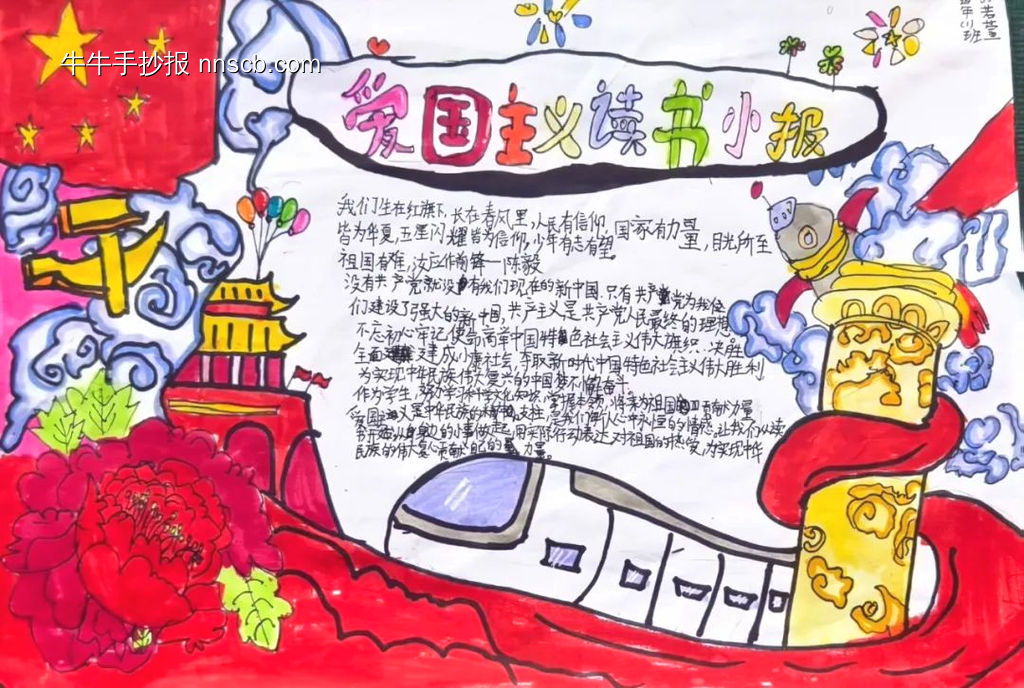 牛牛手抄报 nnscb.com
爱国主义读书小报
我们生在红旗下,长在春风里,人民有信仰,国家有力量,目光所至
皆为华夏,五星闪耀皆为信仰,少年有志有望。
祖国有难,汝应作前锋—陈毅
没有共产党就没有我们现在的新中国,只有共产党为我们
们建设了强大的新中国,共产主义是共产党人民最终的理想。
不忘初心牢记使命高举中国特色社会主义伟大旗织,决胜
全面建成小康社会,夺取新时代中国特色社会主义伟大胜利
为实现中华民族伟大复兴的中国梦不懈奋斗
作为学生,努力学习科学文化知识,掌握本领,将来为祖国贡献力量
爱国主义是中华民族的精神支柱,是我们心中永恒的情感,让我们从读
书开始从身边的小事做起,用实际行动表达对祖国的热爱,为实现中华
民族的伟大复兴贡献自己的力量。